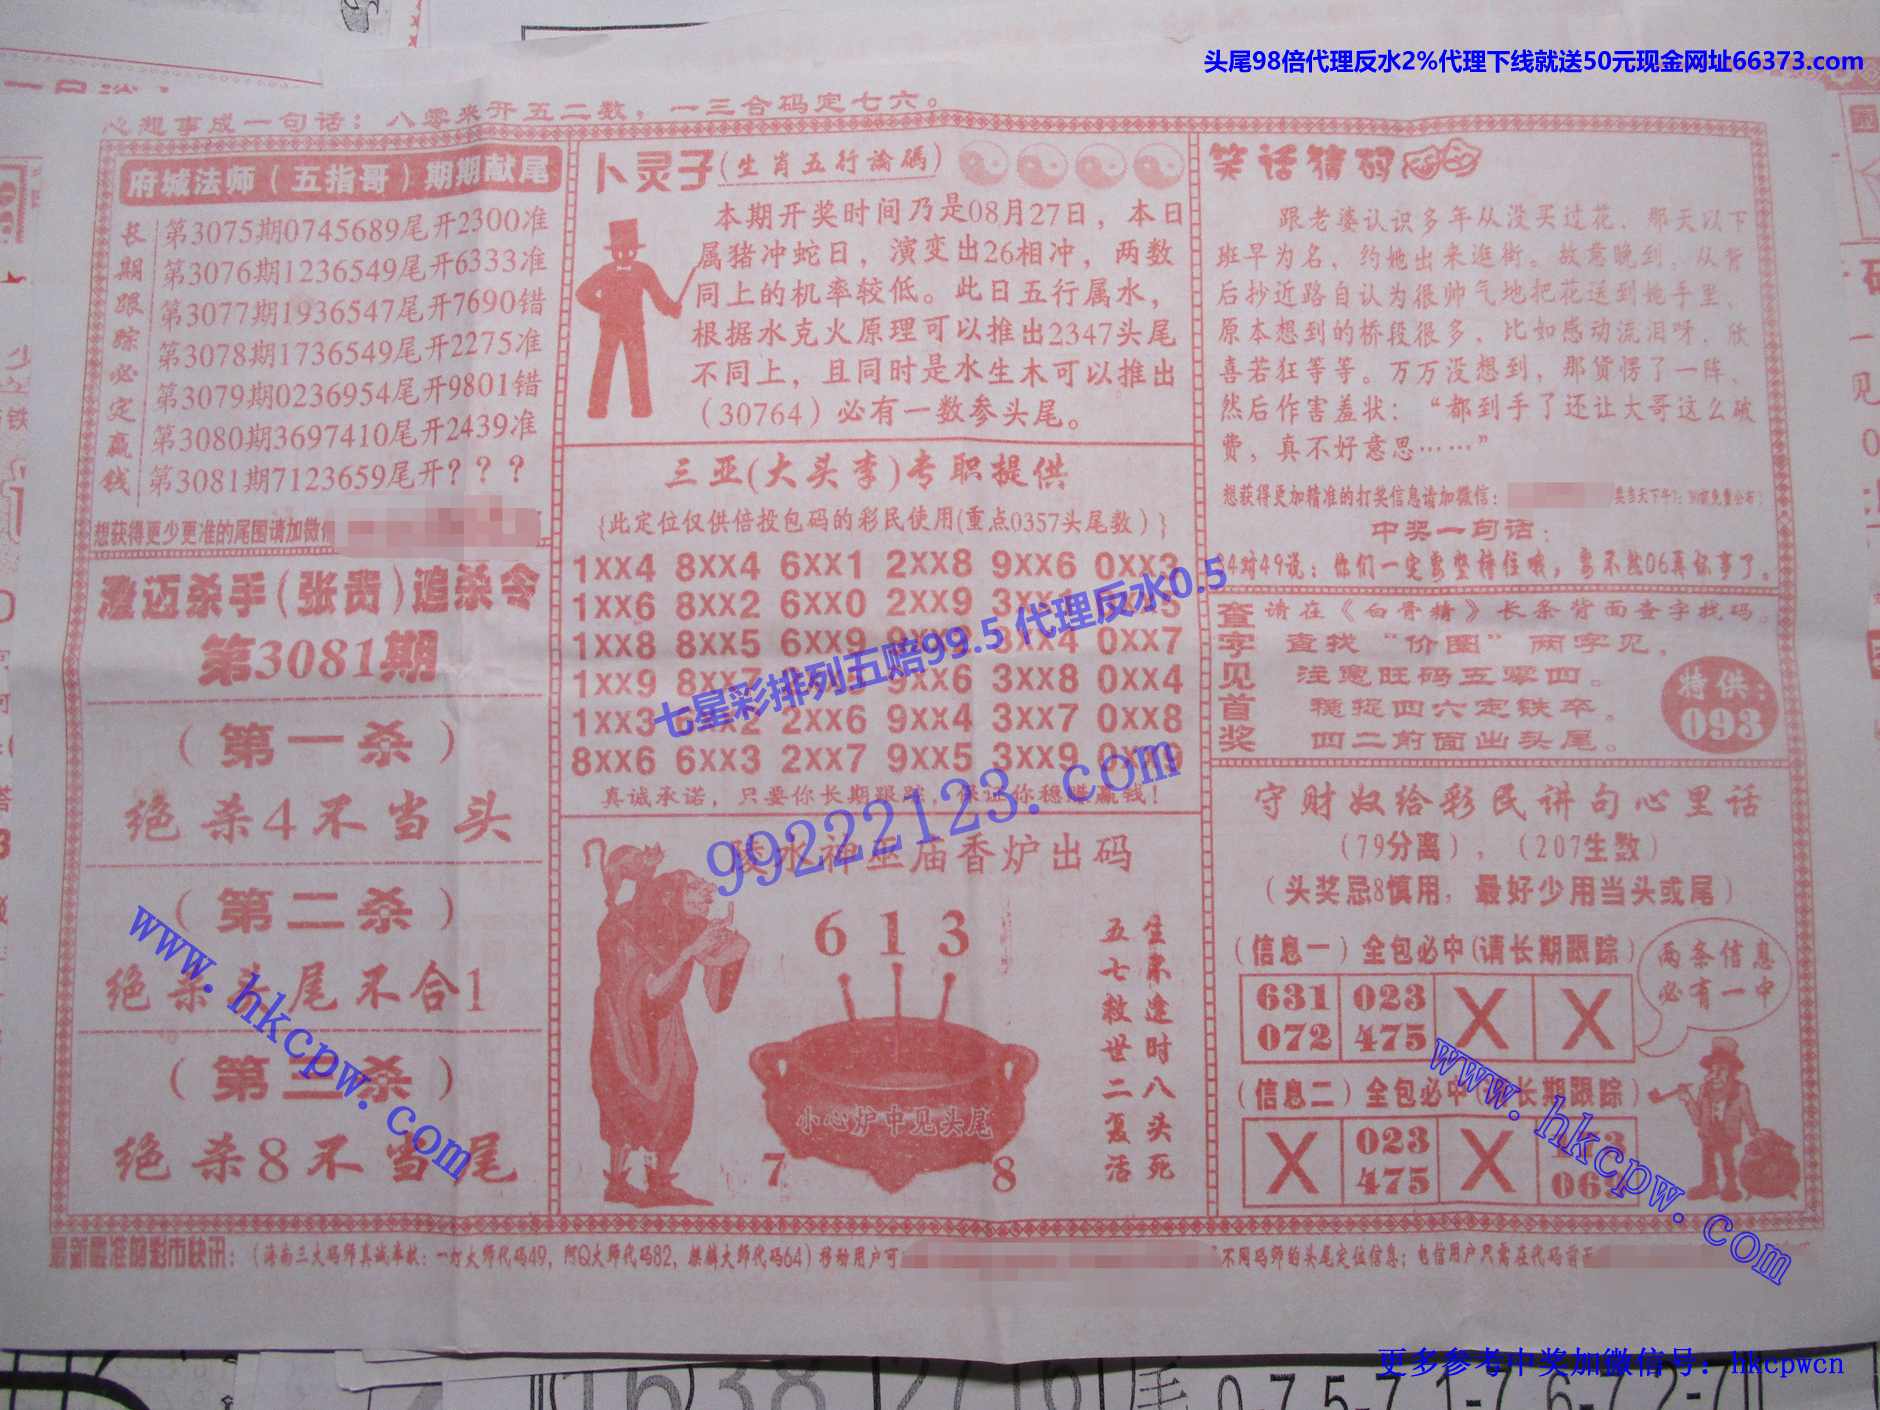 头尾98倍代理反水2%代理下线就送50元现金网址66373.com
心想事成一句话：八零来开五二数，一三合码定七六。
府城法师（五指哥）期期献尾
长期跟踪必定赢钱
第3075期0745689尾开2300准
第3076期1236549尾开6333准
第3077期1936547尾开7690错
第3078期1736549尾开2275准
第3079期0236954尾开9801错
第3080期3697410尾开2439准
第3081期7123659尾开？？？
想获得更少更准的尾围请加微信
澄迈杀手（张贵）追杀令
第3081期
（第一杀）
绝杀4不当头
（第二杀）
绝杀头尾不合1
（第三杀）
绝杀8不当尾
卜灵子（生肖五行论码）
本期开奖时间乃是08月27日，本日
属猪冲蛇日，演变出26相冲，两数
同上的机率较低。此日五行属水，
根据水克火原理可以推出2347头尾
不同上，且同时是水生木可以推出
（30764）必有一数参头尾。
三亚（大头李）专职提供
{此定位仅供倍投包码的彩民使用（重点0357头尾数）}
1XX4 8XX4 6XX1 2XX8 9XX6 0XX3
1XX6 8XX2 6XX0 2XX9
1XX8 8XX5 6XX9 3XX4 0XX7
1XX9 8XX7 9XX6 3XX8 0XX4
1XX3 6XX2 2XX6 9XX4 3XX7 0XX8
8XX6 6XX3 2XX7 9XX5 3XX9 0XX9
真诚承诺，只要你长期跟踪，保证你稳赚赢钱！
陵水神巫庙香炉出码
6 1 3
小心炉中见头尾
7 8
生不逢时八头死
五七救世二复活
笑话猜码
跟老婆认识多年从没买过花，那天以下
班早为名，约她出来逛街。故意晚到，从背
后抄近路自认为很帅气地把花送到她手里、
原本想到的桥段很多，比如感动流泪呀、欣
喜若狂等等。万万没想到，那货愣了一阵、
然后作害羞状：“都到手了还让大哥这么破
费，真不好意思……”
想获得更加精准的打奖信息请加微信：
中奖一句话：
4对49说：你们一定要坚持住哦，要不然06真你事了。
查字见首奖
请在《白骨精》长条背面查字找码。
查找“价圈”两字见，
注意旺码五零四。
稳捉四六定铁卒。
四二前面出头尾。
特供：
093
守财奴给彩民讲句心里话
（79分离），（207生数）
（头奖忌8慎用，最好少用当头或尾）
（信息一）全包必中（请长期跟踪）
631 023 X X
072 475
两条信息
必有一中
（信息二）全包必中（请长期跟踪）
X 023 X
475
最新最准的彩市快讯：（海南三大码师真诚奉献：一灯大师代码49，阿Q大师代码82，麒麟大师代码64）移动用户可
不同码师的头尾定位信息；电信用户只需在代码前
七星彩排列五赔99.5 代理反水0.5
99222123.com
www.hkcpw.com
www.hkcpw.com
更多参考中奖加微信号：hkcpwcn
1638 2716 尾 0-7 5-7 1-7 6-7 2-7